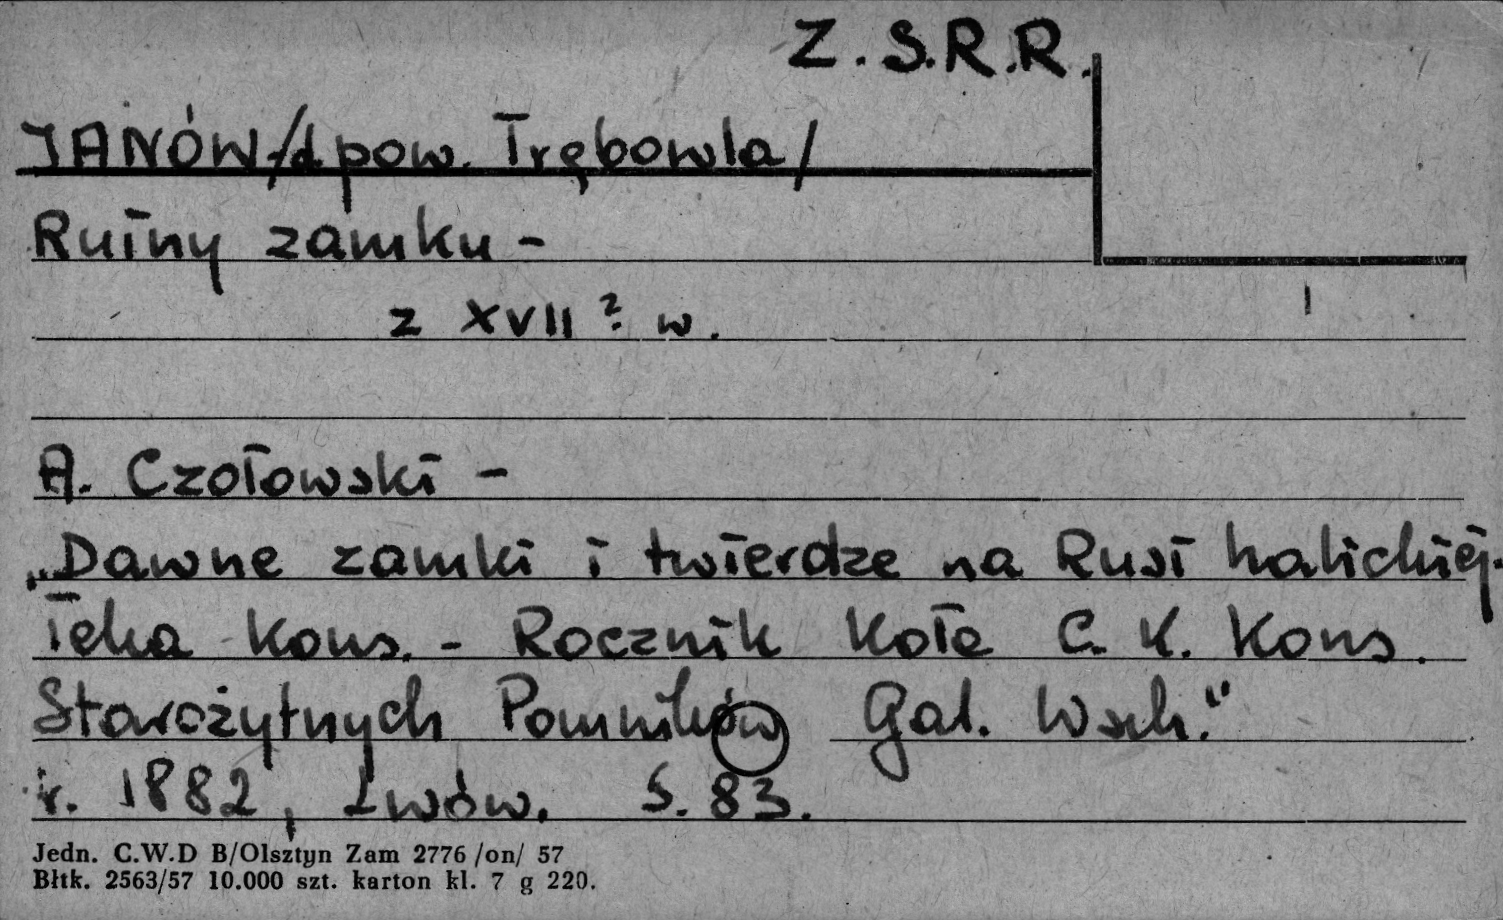 Z.S.R.R.
JANÓW /d pow. Trębowla/
Ruiny zamku -
z XVII ? w.
A. Czołowski -
„Dawne zamki i twierdze na Rusi halickiej.
Teka Kons. - Rocznik Koła C. K. Kons.
Starożytnych Pomników Gal. Wsch."
r. 1882, Lwów. S. 83.
Jedn. C.W.D B/Olsztyn Zam 2776 /on/ 57
Błtk. 2563/57 10.000 szt. karton kl. 7 g 220.